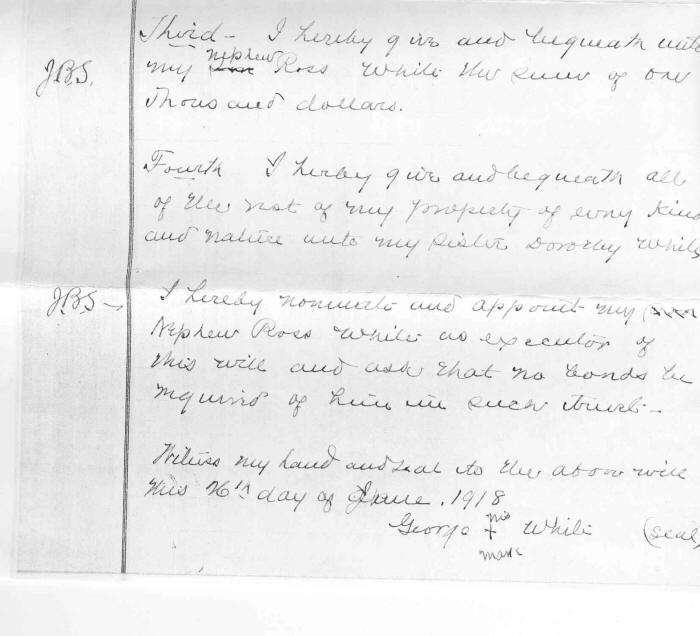 Third - I hereby give and bequeath unto
J.B.S. my nephew Ross White the sum of one
thousand dollars.
Fourth I herby give and bequeath all
of the rest of my property of every kind
and nature unto my sister Dorothy White
J.B.S - I hereby nominate and appoint my
Nephew Ross White as executor of
this will and ask that no bonds be
required of him in such trust -
Witness my hand and seal to the above will
this 26th day of June. 1918
George his + mark White (seal)